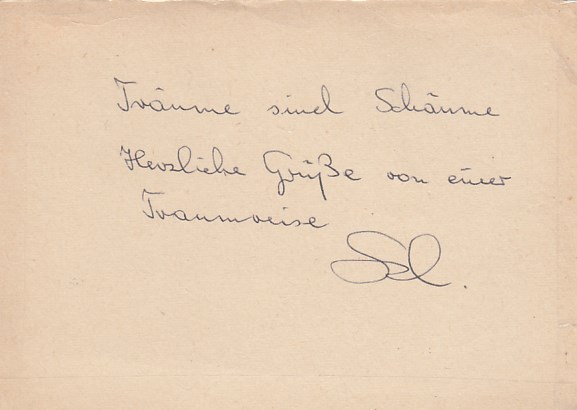 Träume sind Schäume
Herzliche Grüße von einer
Traumreise